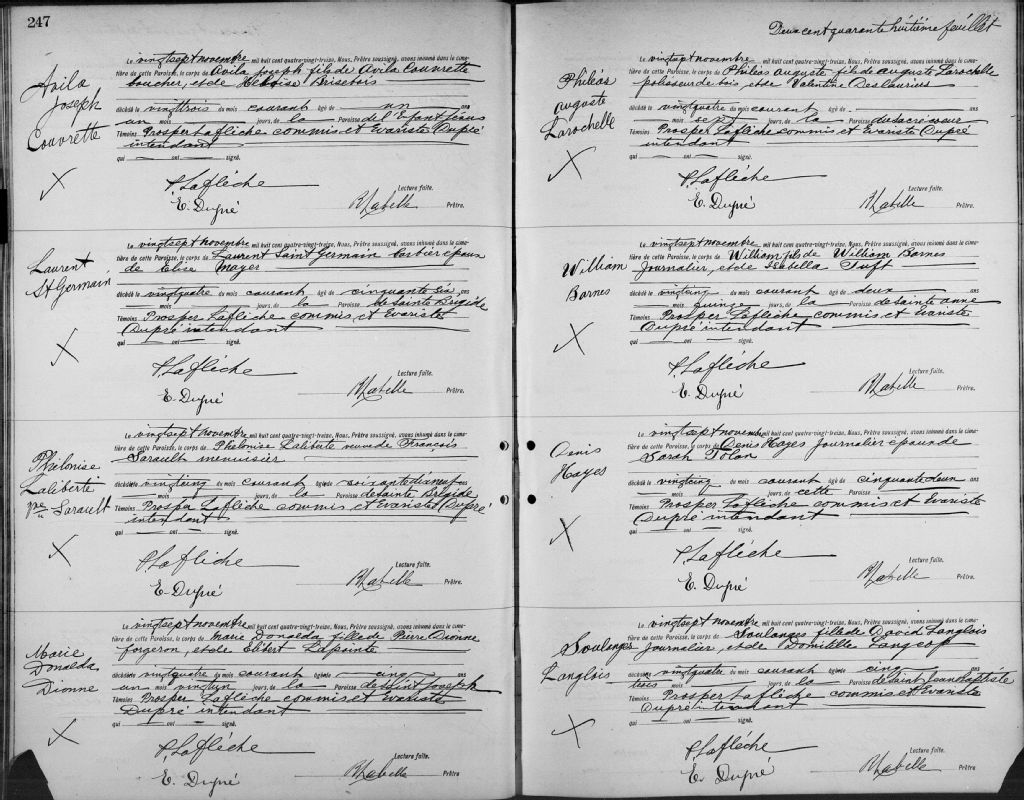 247
Avila
Joseph
Couvrette
Le vingtsept novembre mil huit cent quatre-vingt-treize, Nous, Prêtre soussigné, avons inhumé dans le cime-
tière de cette Paroisse, le corps de Avila Joseph fils de Avila Couvrette
boucher, et de Héloïse Brisebois
décédé le vingttrois du mois courant âgé de un ans
un mois jours, de la Paroisse de l'Enfant Jésus
Témoins Prosper Laflèche commis et Evariste Dupré
intendant
qui ont signé.
P. Laflèche
E. Dupré
Lecture faite.
Prêtre.
Laurent
St Germain
Le vingtsept novembre mil huit cent quatre-vingt-treize, Nous, Prêtre soussigné, avons inhumé dans le cime-
tière de cette Paroisse, le corps de Laurent Saint Germain barbier époux
de Elise Mayer
décédé le vingtquatre du mois courant âgé de cinquante six ans
mois jours, de la Paroisse de Sainte Brigide
Témoins Prosper Laflèche commis, et Evariste
Dupré intendant
qui ont signé.
P. Laflèche
E. Dupré
Lecture faite.
Prêtre.
Philonise
Laliberté
Sarault
Le vingtsept novembre mil huit cent quatre-vingt-treize, Nous, Prêtre soussigné, avons inhumé dans le cime-
tière de cette Paroisse, le corps de Phelonise Laliberté veuve de François
Sarault menuisier
décédée le vingtcinq du mois courant âgée de soixante dixneuf ans
mois jours, de la Paroisse de Sainte Brigide
Témoins Prosper Laflèche commis et Evariste Dupré
intendant
qui ont signé.
P. Laflèche
E. Dupré
Lecture faite.
Prêtre.
Marie
Donalda
Dionne
Le vingtsept novembre mil huit cent quatre-vingt-treize, Nous, Prêtre soussigné, avons inhumé dans le cime-
tière de cette Paroisse, le corps de Marie Donalda fille de Pierre Dionne
forgeron, et de Lapointe
décédée le vingtquatre du mois courant âgée de cinq ans
un mois vingtun jours, de la Paroisse de Saint Joseph
Témoins Prosper Laflèche commis et Evariste
Dupré intendant
qui ont signé.
P. Laflèche
E. Dupré
Lecture faite.
Prêtre.
Deux cent quarante huitième feuillet
Philéas
Auguste
Larochelle
Le vingtsept novembre mil huit cent quatre-vingt-treize, Nous, Prêtre soussigné, avons inhumé dans le cime-
tière de cette Paroisse, le corps de Philéas Auguste fils de Auguste Larochelle
polisseur de bois, et de Valentine Deslauriers
décédé le vingtquatre du mois courant âgé de ans
mois sept jours, de la Paroisse du Sacré Coeur
Témoins Prosper Laflèche commis et Evariste Dupré
intendant
qui ont signé.
P. Laflèche
E. Dupré
Lecture faite.
Prêtre.
William
Barnes
Le vingtsept novembre mil huit cent quatre-vingt-treize, Nous, Prêtre soussigné, avons inhumé dans le cime-
tière de cette Paroisse, le corps de William, fils de William Barnes
Journalier, et de Isabella Tuft
décédé le vingtcinq du mois courant âgé de deux ans
mois quinze jours, de la Paroisse de Sainte Anne
Témoins Prosper Laflèche commis et Evariste
Dupré intendant
qui ont signé.
P. Laflèche
E. Dupré
Lecture faite.
Prêtre.
Denis
Hayes
Le vingtsept novembre mil huit cent quatre-vingt-treize, Nous, Prêtre soussigné, avons inhumé dans le cime-
tière de cette Paroisse, le corps de Denis Hayes Journalier époux de
Sarah Tolan
décédé le vingtcinq du mois courant âgé de cinquante deux ans
mois jours, de cette Paroisse
Témoins Prosper Laflèche commis et Evariste
Dupré intendant
qui ont signé.
P. Laflèche
E. Dupré
Lecture faite.
Prêtre.
Soulanges
Langlois
Le vingtsept novembre mil huit cent quatre-vingt-treize, Nous, Prêtre soussigné, avons inhumé dans le cime-
tière de cette Paroisse, le corps de Soulanges fille de David Langlois
Journalier, et de Domitille
décédée le vingtquatre du mois courant âgée de cinq ans
trois mois jours, de la Paroisse de Saint Jean Baptiste
Témoins Prosper Laflèche commis et Evariste
Dupré intendant
qui ont signé.
P. Laflèche
E. Dupré
Lecture faite.
Prêtre.